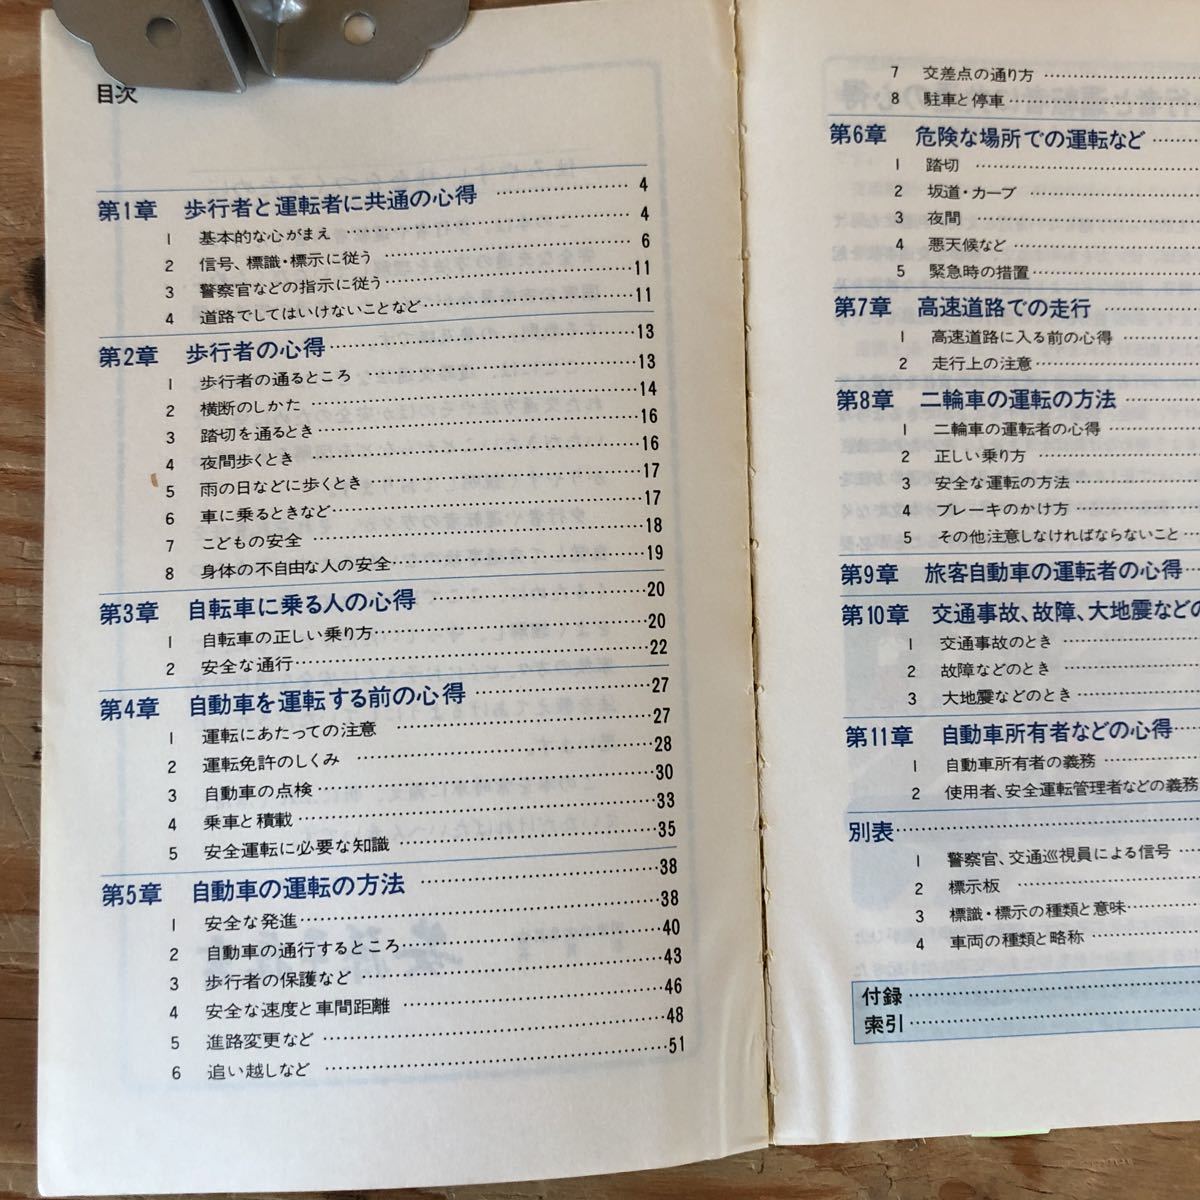 目次
第1章 歩行者と運転者に共通の心得 …… 4
1 基本的な心がまえ …… 4
2 信号、標識・標示に従う …… 6
3 警察官などの指示に従う …… 11
4 道路でしてはいけないことなど …… 11
第2章 歩行者の心得 …… 13
1 歩行者の通るところ …… 13
2 横断のしかた …… 14
3 踏切を通るとき …… 16
4 夜間歩くとき …… 16
5 雨の日などに歩くとき …… 17
6 車に乗るときなど …… 17
7 こどもの安全 …… 18
8 身体の不自由な人の安全 …… 19
第3章 自転車に乗る人の心得 …… 20
1 自転車の正しい乗り方 …… 20
2 安全な通行 …… 22
第4章 自動車を運転する前の心得 …… 27
1 運転にあたっての注意 …… 27
2 運転免許のしくみ …… 28
3 自動車の点検 …… 30
4 乗車と積載 …… 33
5 安全運転に必要な知識 …… 35
第5章 自動車の運転の方法 …… 38
1 安全な発進 …… 38
2 自動車の通行するところ …… 40
3 歩行者の保護など …… 43
4 安全な速度と車間距離 …… 46
5 進路変更など …… 48
6 追い越しなど …… 51
7 交差点の通り方 ……
8 駐車と停車 ……
第6章 危険な場所での運転など ……
1 踏切 ……
2 坂道・カーブ ……
3 夜間 ……
4 悪天候など ……
5 緊急時の措置 ……
第7章 高速道路での走行 ……
1 高速道路に入る前の心得 ……
2 走行上の注意 ……
第8章 二輪車の運転の方法 ……
1 二輪車の運転者の心得 ……
2 正しい乗り方 ……
3 安全な運転の方法 ……
4 ブレーキのかけ方 ……
5 その他注意しなければならないこと ……
第9章 旅客自動車の運転者の心得 ……
第10章 交通事故、故障、大地震などの
1 交通事故のとき ……
2 故障などのとき ……
3 大地震などのとき ……
第11章 自動車所有者などの心得 ……
1 自動車所有者の義務 ……
2 使用者、安全運転管理者などの義務
別表 ……
1 警察官、交通巡視員による信号 ……
2 標示板 ……
3 標識・標示の種類と意味 ……
4 車両の種類と略称 ……
付録 ……
索引 ……